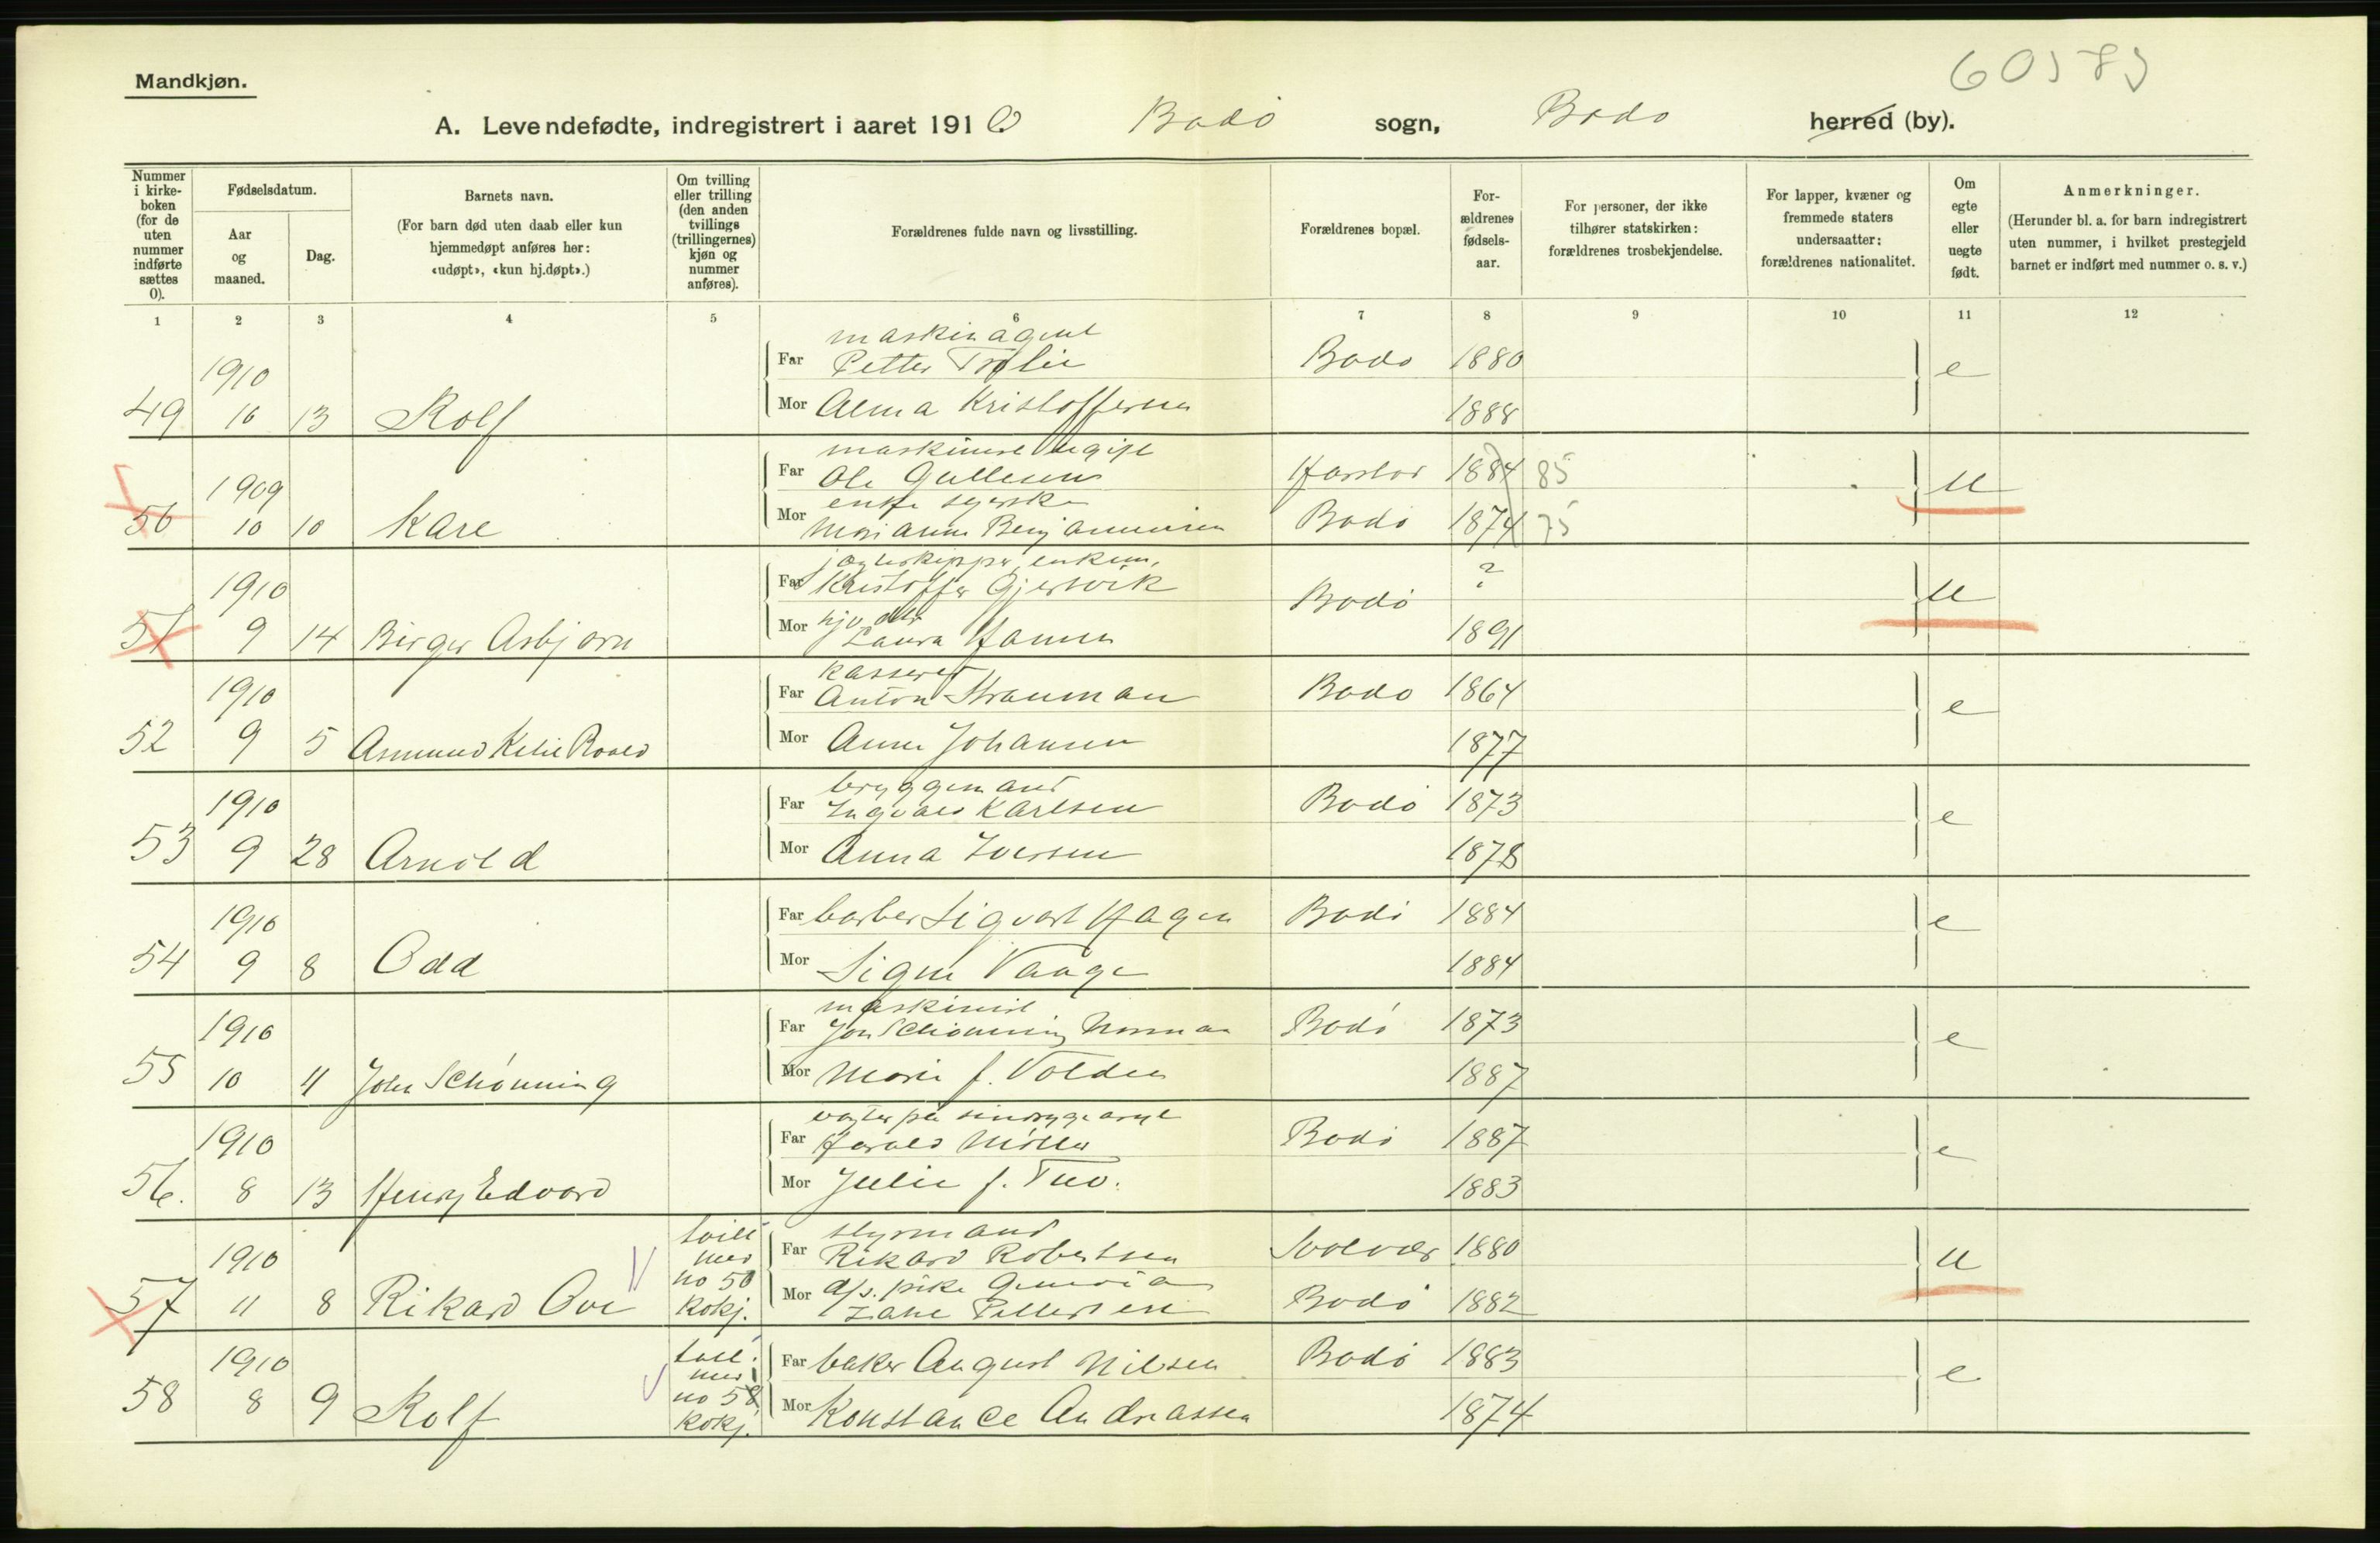 60375
Mandkjøn.
A. Levendefødte, indregistrert i aaret 1910 Bodø sogn, Bodø herred (by).
Nummer i kirkeboken (for de uten nummer indførte sættes 0).
Fødselsdatum.
Aar og maaned.
Dag.
Barnets navn.
(For barn død uten daab eller kun hjemmedøpt anføres her: «udøpt», «kun hj.døpt».)
Om tvilling eller trilling (den anden tvillings (trillingernes) kjøn og nummer anføres).
Forældrenes fulde navn og livsstilling.
Forældrenes bopæl.
For-ældrenes fødsels-aar.
For personer, der ikke tilhører statskirken: forældrenes trosbekjendelse.
For lapper, kvæner og fremmede staters undersaatter: forældrenes nationalitet.
Om egte eller uegte født.
Anmerkninger.
(Herunder bl. a. for barn indregistrert uten nummer, i hvilket prestegjeld barnet er indført med nummer o. s. v.)
1 2 3 4 5 6 7 8 9 10 11 12
maskinagent
1910 Far Petter Bodø 1880 e
49 10 13 Rolf Mor Alma Kristoffersen 1888
maskinist ugift
1909 Far Ole Gullesen Harstad 1884 85 u
50 10 10 Kåre enke syerske
Mor Marianne Benjaminsen Bodø 1874 75
jægteskipper, enkem.
1910 Far Kristoffer Gjersvik Bodø ? u
51 9 14 Birger Asbjørn Mor Laura Hansen 1891
kasserer
1910 Far Anton Strauman Bodø 1864 e
52 9 5 Asmund Ketil Roald Mor Anna Johansen 1877
bryggemand
1910 Far Ingvald Karlsen Bodø 1873 e
53 9 28 Arnold Mor Anna Iversen 1878
1910 Far barber Sigvart Hagen Bodø 1884 e
54 9 8 Odd Mor Signe Vaage 1884
maskinist
1910 Far Jon Schønning Norman Bodø 1873 e
55 10 11 John Schønning Mor Marie f. Volden 1887
vogter på sindsygeasyl
1910 Far Harald Möller Bodø 1887 e
56. 8 13 Henry Edvard Mor Julie f. 1883
tvill med no 50 kvkj.
styrmand
1910 Far Rikard Robertsen Svolvær 1880 u
57 11 8 Rikard Ove Mor pike
Pettersen Bodø 1882
tvill. med no 58 kvkj.
1910 Far baker August Nilsen Bodø 1883 e
58 8 9 Rolf Mor Konstance Andreassen 1874